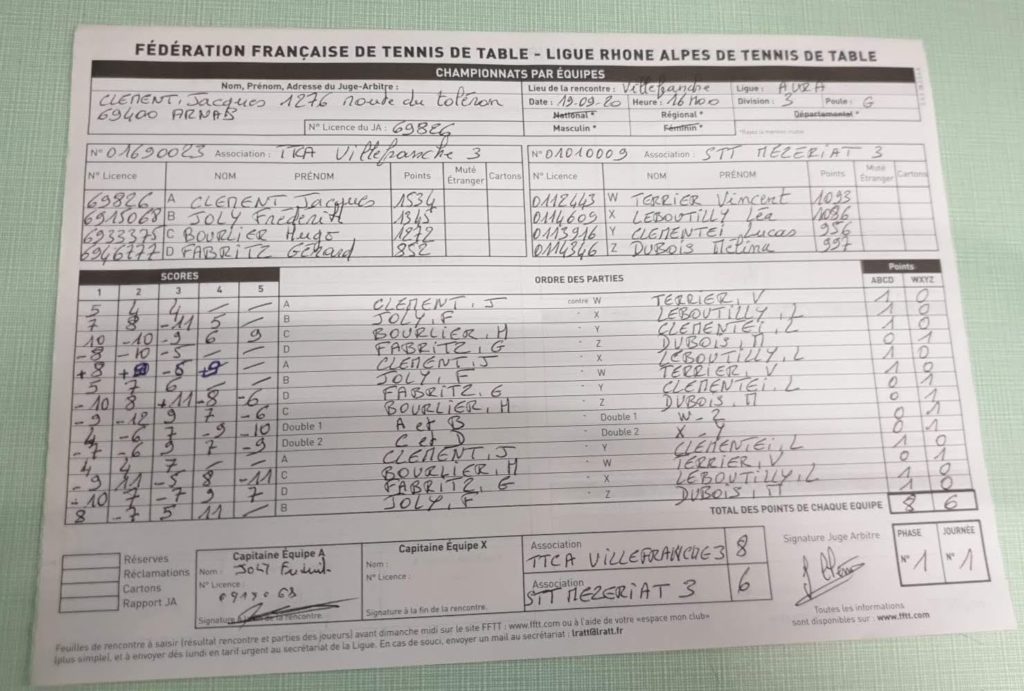 FÉDÉRATION FRANÇAISE DE TENNIS DE TABLE - LIGUE RHONE ALPES DE TENNIS DE TABLE
CHAMPIONNATS PAR ÉQUIPES
Nom, Prénom, Adresse du Juge-Arbitre :
CLEMENT, Jacques 1276 route du
69400 ARNAS
N° Licence du JA : 69826
Lieu de la rencontre : Villefranche
Ligue : AURA
Date : 19-09-20 Heure : 16H00 Division : 3 Poule : G
National * Régional * Départemental *
Masculin * Féminin * *Rayez la mention inutile
N° 01690023 Association : TTCA Villefranche 3
N° 01010009 Association : STT MEZERIAT 3
N° Licence NOM PRÉNOM Points Muté Étranger Cartons
N° Licence NOM PRÉNOM Points Muté Étranger Cartons
69826 A CLEMENT Jacques 1534
6915068 B JOLY Frédérik 1345
6933375 C BOURLIER Hugo 1272
6946777 D FABRITZ Gérard 852
0112443 W TERRIER Vincent 1093
0114609 X LEBOUTILLY Léa 1086
0113916 Y CLEMENTEI Lucas 956
0114346 Z DUBOIS Mélina 997
SCORES ORDRE DES PARTIES Points
1 2 3 4 5 ABCD WXYZ
5 4 4 – – A CLEMENT, J contre W TERRIER, V 1 0
7 8 -11 5 – B JOLY, F " X LEBOUTILLY, L 1 0
10 -10 -9 6 9 C BOURLIER, H " Y CLEMENTEI, L 1 0
-8 -10 -5 – – D FABRITZ, G " Z DUBOIS, M 0 1
A CLEMENT, J " X LEBOUTILLY, L 1 0
5 7 6 – – B JOLY, F " W TERRIER, V 1 0
-10 8 +11 -8 -6 D FABRITZ, G " Y CLEMENTEI, L 0 1
-9 -12 9 7 -6 C BOURLIER, H " Z DUBOIS, M 0 1
4 -6 7 -9 -10 Double 1 A et B " Double 1 W - Z 0 1
-7 -6 9 7 -9 Double 2 C et D " Double 2 X - Y 0 1
4 4 7 – – A CLEMENT, J " Y CLEMENTEI, L 1 0
-9 11 -5 8 -11 C BOURLIER, H " W TERRIER, V 0 1
-10 7 -7 9 7 D FABRITZ, G " X LEBOUTILLY, L 1 0
8 -7 5 11 – B JOLY, F " Z DUBOIS, M 1 0
TOTAL DES POINTS DE CHAQUE EQUIPE 8 6
Réserves
Réclamations
Cartons
Rapport JA
Capitaine Équipe A
Nom : JOLY Frédérik
N° Licence :
Signature à la fin de la rencontre.
Capitaine Équipe X
Nom :
N° Licence :
Signature à la fin de la rencontre.
Association
TTCA VILLEFRANCHE 3 8
Association
STT MEZERIAT 3 6
Signature Juge Arbitre
PHASE JOURNÉE
N° 1 N° 1
Toutes les informations
sont disponibles sur : www.fftt.com
Feuilles de rencontre à saisir (résultat rencontre et parties des joueurs) avant dimanche midi sur le site FFTT : www.fftt.com ou à l'aide de votre «espace mon club»
(plus simple), et à envoyer dès lundi en tarif urgent au secrétariat de la Ligue. En cas de souci, envoyer un mail au secrétariat : lratt@lratt.fr